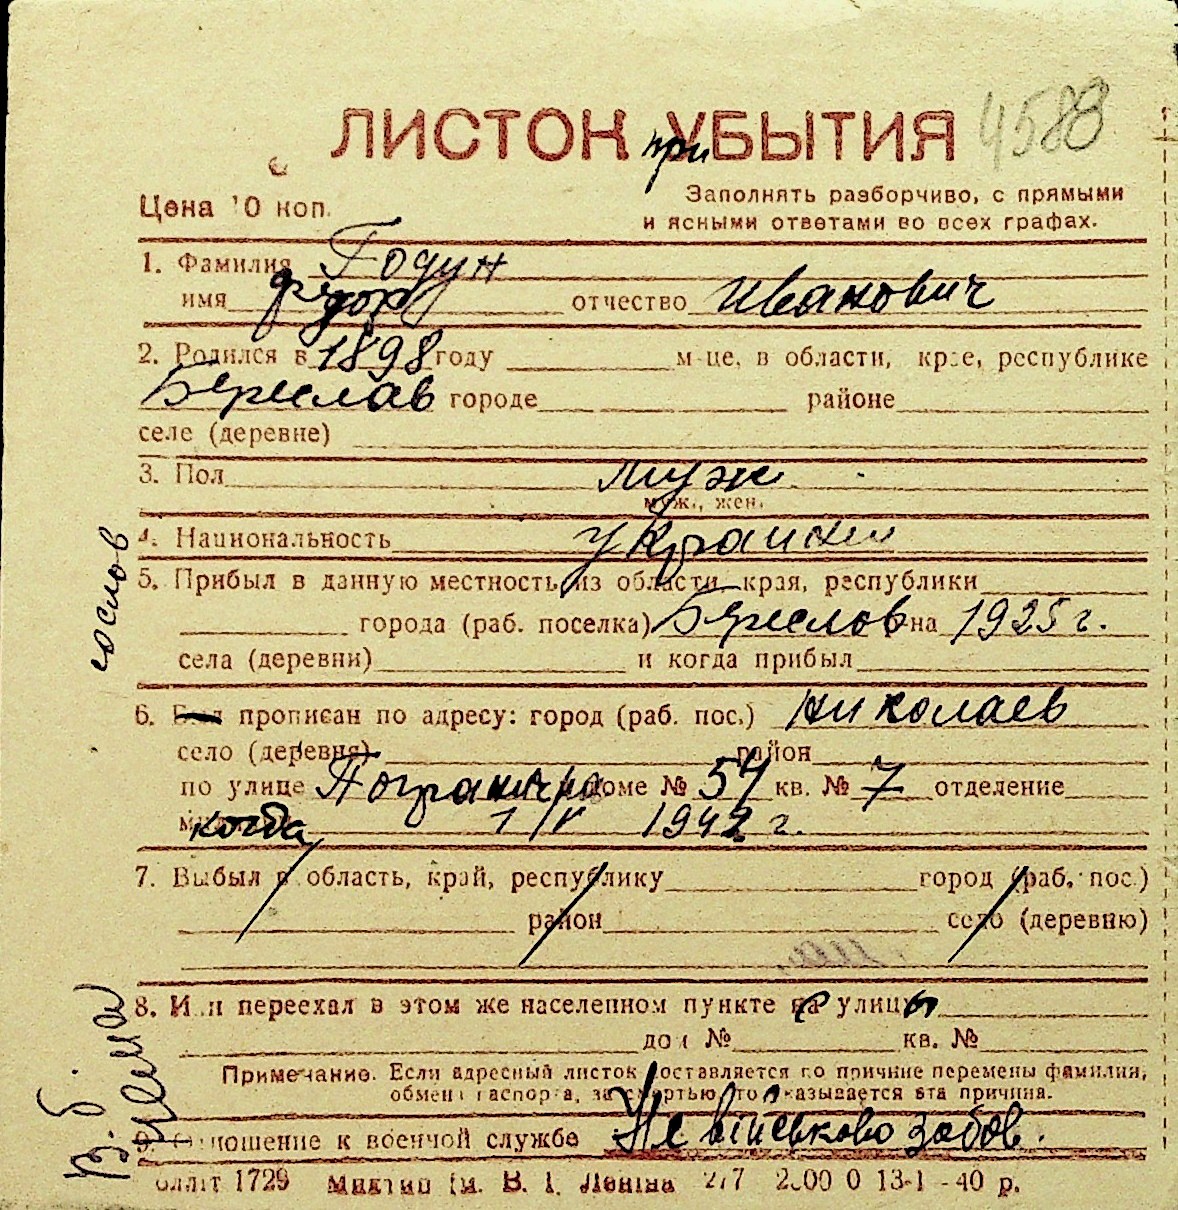 4588
ЛИСТОК при УБЫТИЯ
Цена 10 коп.
Заполнять разборчиво, с прямыми
и ясными ответами во всех графах.
1. Фамилия Годун
имя Федор отчество Иванович
2. Родился в 1898 году м-це, в области, крае, республике
Береслав городе районе
селе (деревне)
3. Пол муж
муж., жен.
4. Национальность
5. Прибыл в данную местность из области края, республики
города (раб. поселка) Береслов на 1925 г.
села (деревни) и когда прибыл
6. Был прописан по адресу: город (раб. пос.) Николаев
село (деревня) район
по улице доме № 54 кв. № 7 отделение
когда 1/V 1942 г.
7. Выбыл в область, край, республику город (раб. пос.)
район село (деревню)
8. Или переехал в этом же населенном пункте улицы
дом № кв. №
Примечание. Если адресный листок составляется по причине перемены фамилия,
обмена паспорта, за смертью, то указывается эта причина.
9. Отношение к военной службе Не військово зобов.
1729 В. І. Леніна 277 13-1-40 р.